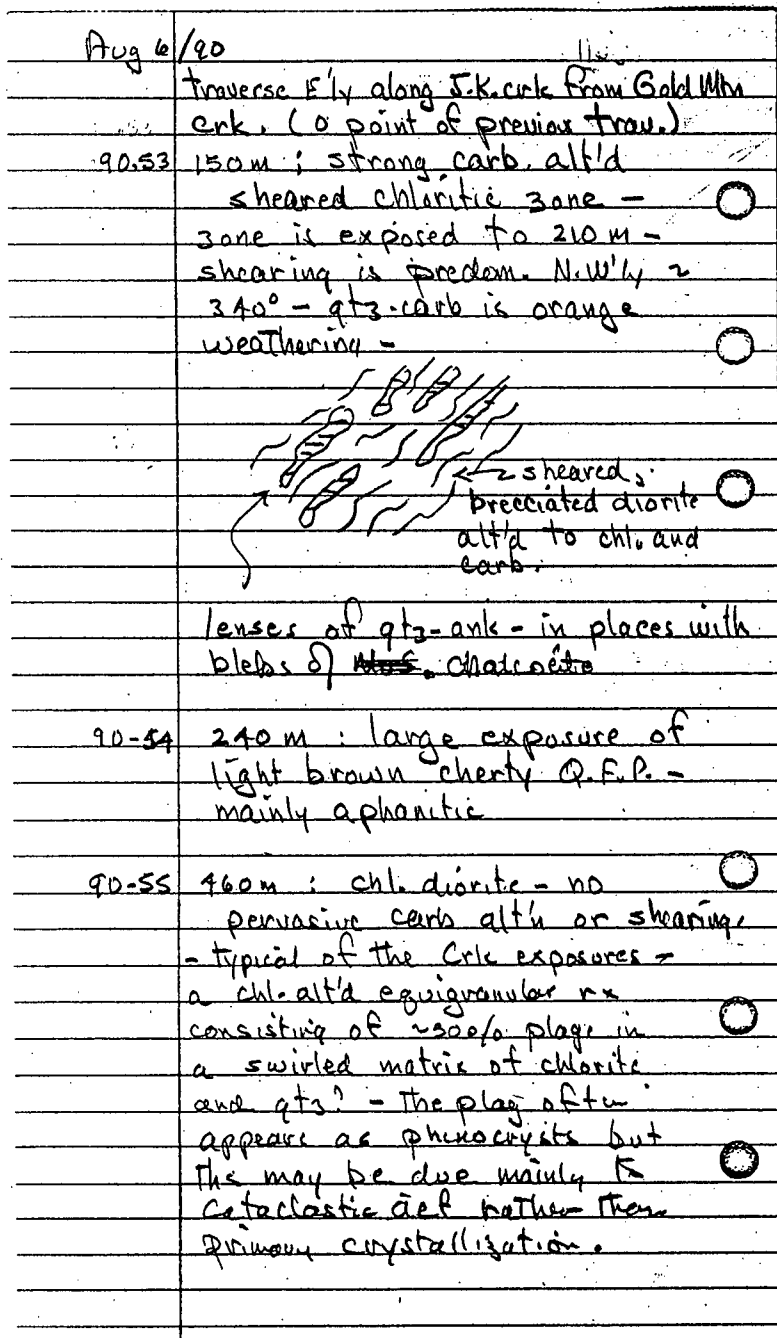 Aug 6/90
traverse E'ly along J.K. crk from Gold Mtn
crk. (0 point of previous trav.)
90.53 150m : strong carb. alt'd
sheared chloritic zone -
zone is exposed to 210 m -
shearing is predom. N.W'ly ~
340° - qtz-carb is orange
weathering -
sheared,
brecciated diorite
alt'd to chl. and
carb.
lenses of qtz-ank - in places with
blebs of chalcocite
90-54 240 m : large exposure of
light brown cherty Q.F.P. -
mainly aphanitic
90-55 460m : chl. diorite - no
pervasive carb alt'n or shearing.
- typical of the Crk exposures -
a chl-alt'd equigranular rx
consisting of ~30% plag in
a swirled matrix of chlorite
and qtz? - The plag often
appears as phenocrysts but
the may be due mainly to
cataclastic def rather than
primary crystallization.